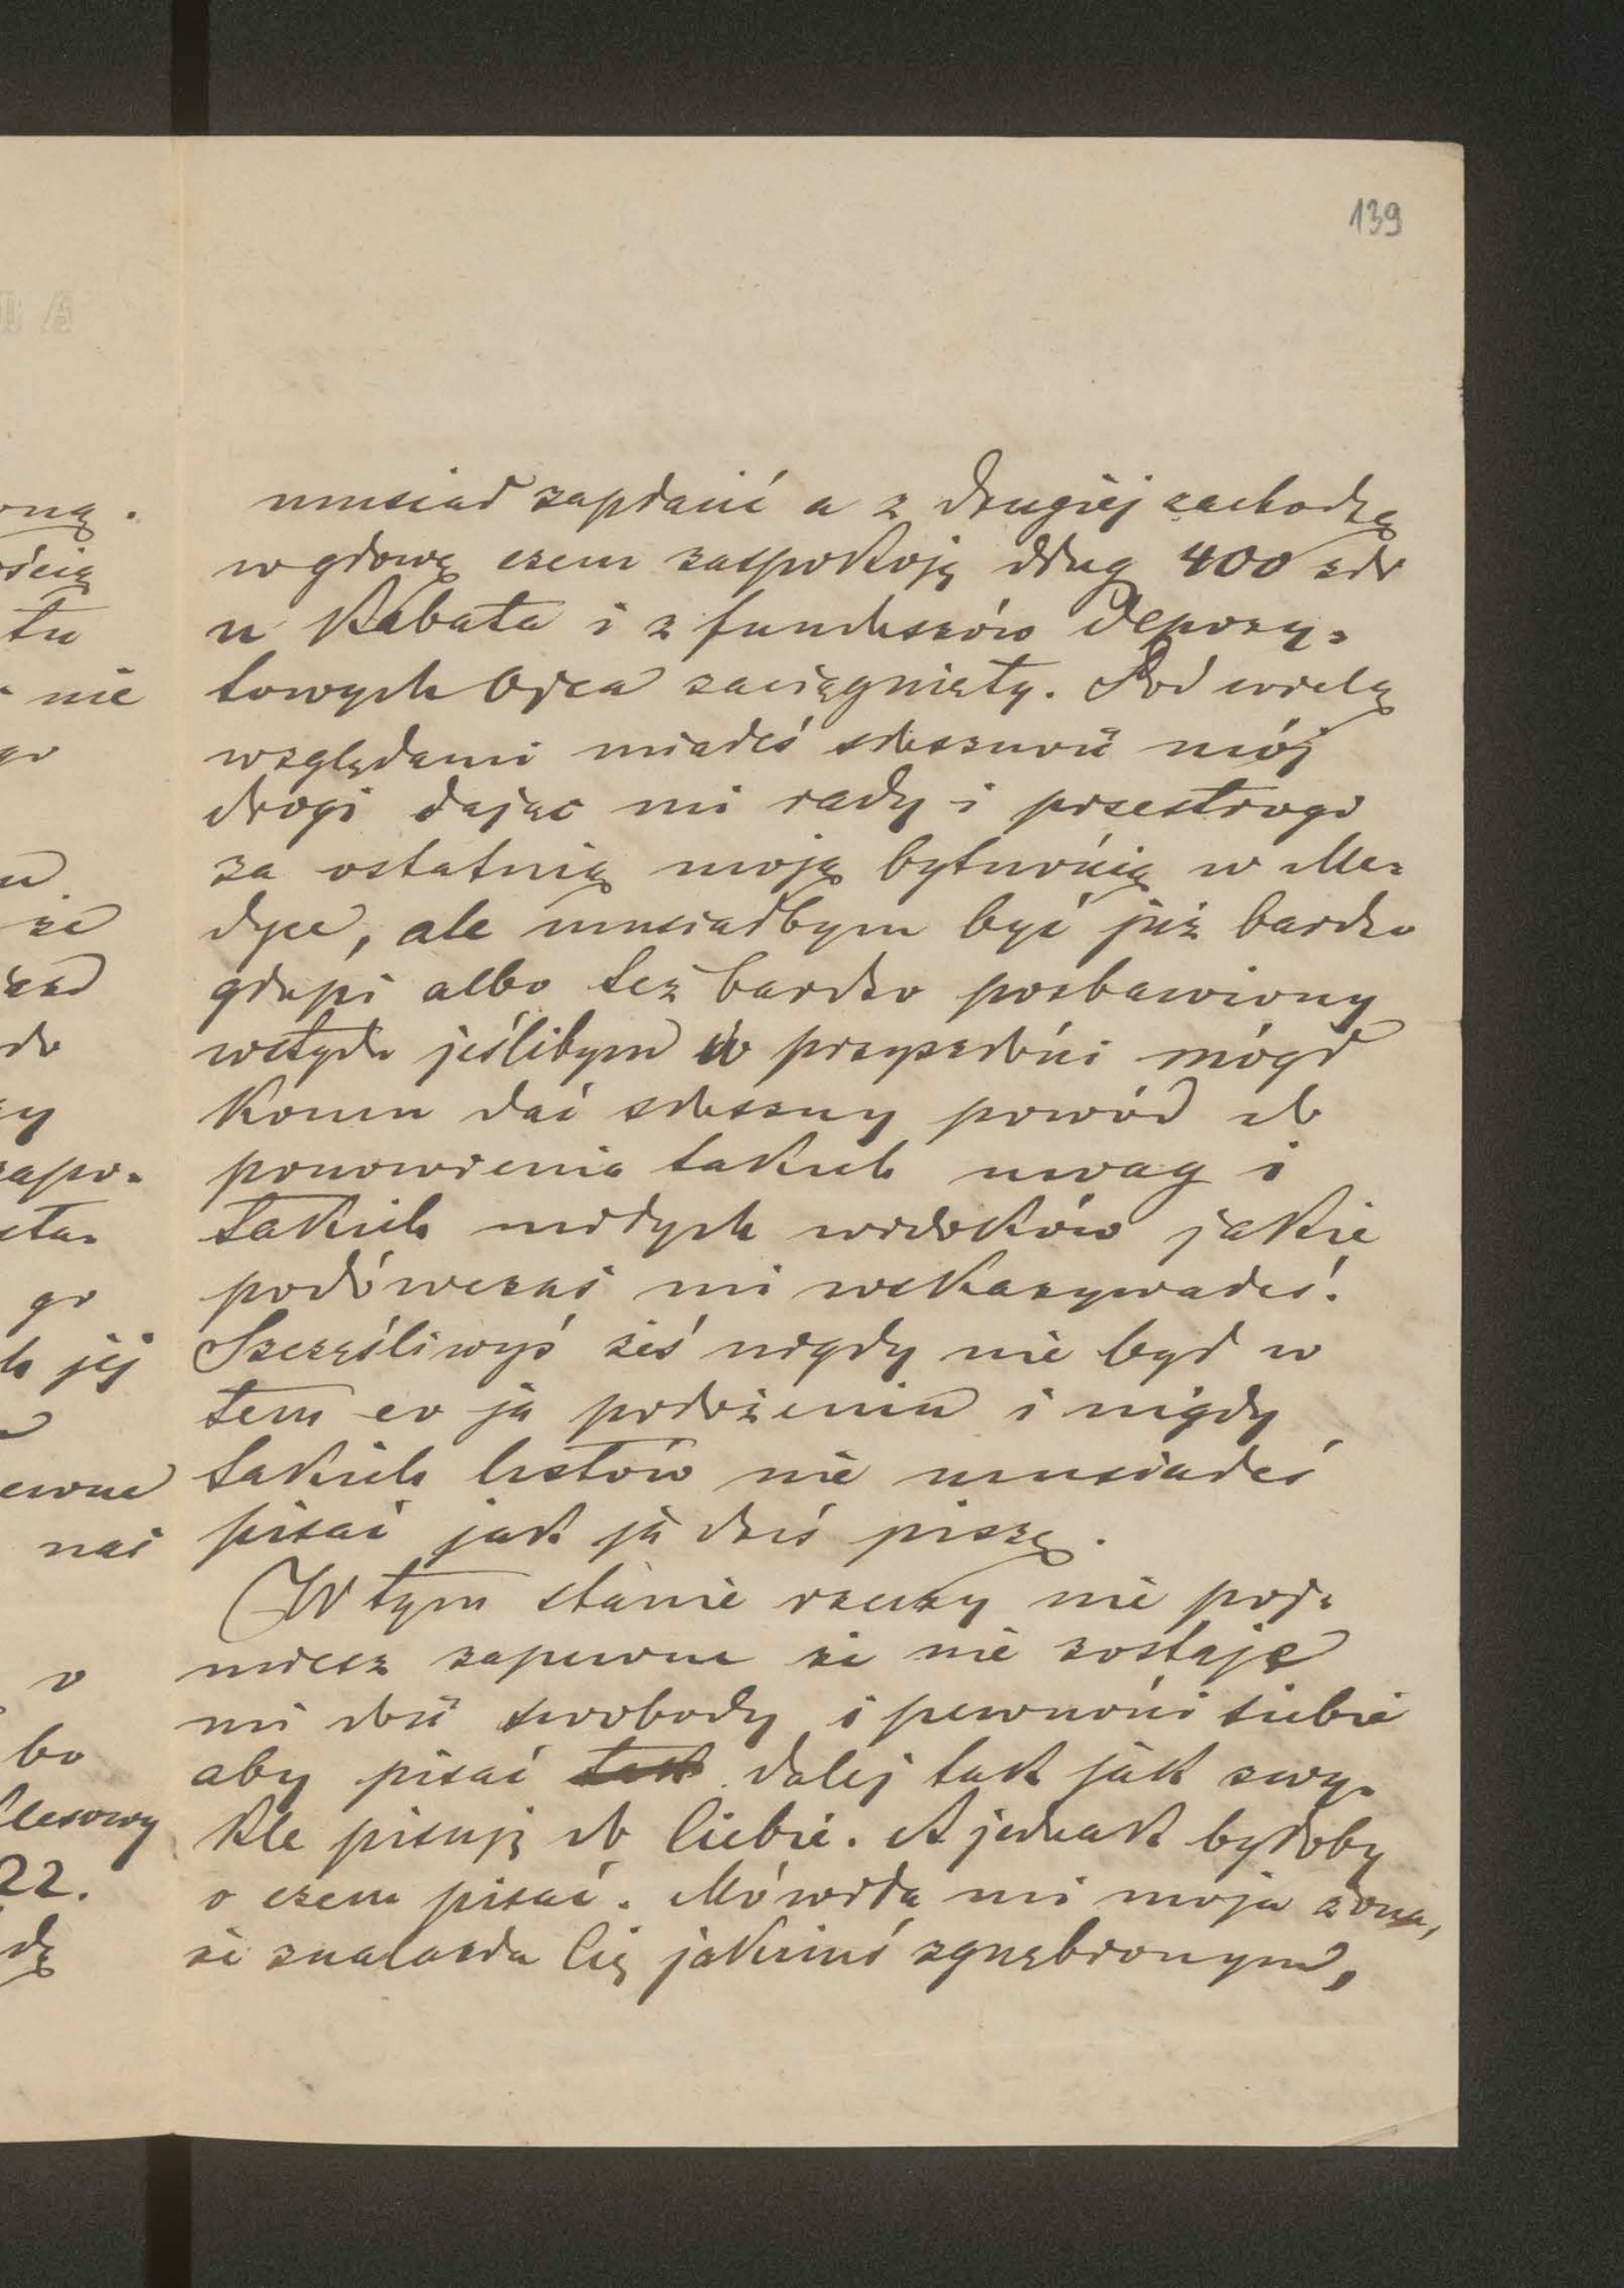 139
musiał zapłacić a z drugiej zachodzę
w głowę czem zaspokoję dług 400 złr
u Kabata i z funduszów depozy-
towych Ojca zaciągnięty. Pod wielą
względami miałeś słuszność mój
drogi dając mi rady i przestrogi
za ostatnią moją bytnością w Me-
dyce, ale musiałbym być już bardzo
głupi albo też bardzo pozbawiony
wstydu jeślibym w przyszłości mógł
komu dać słuszny powód do
ponowienia takich uwag i
takich miłych widoków jakie
podówczas mi wskazywałeś.
Szczęśliwyś żeś nigdy nie był w
tem co ja położeniu i nigdy
takich listów nie musiałeś
pisać jak ja dziś piszę.
W tym stanie rzeczy nie poj-
miesz zapewne że nie zostaje
mi dość swobody i pewności siebie
aby pisać tak dalej tak jak zwy-
kle pisuję do Ciebie. A jednak byłoby
o czem pisać. Mówiła mi moja żona,
że znalazła Cię jakimś zgnębionym,